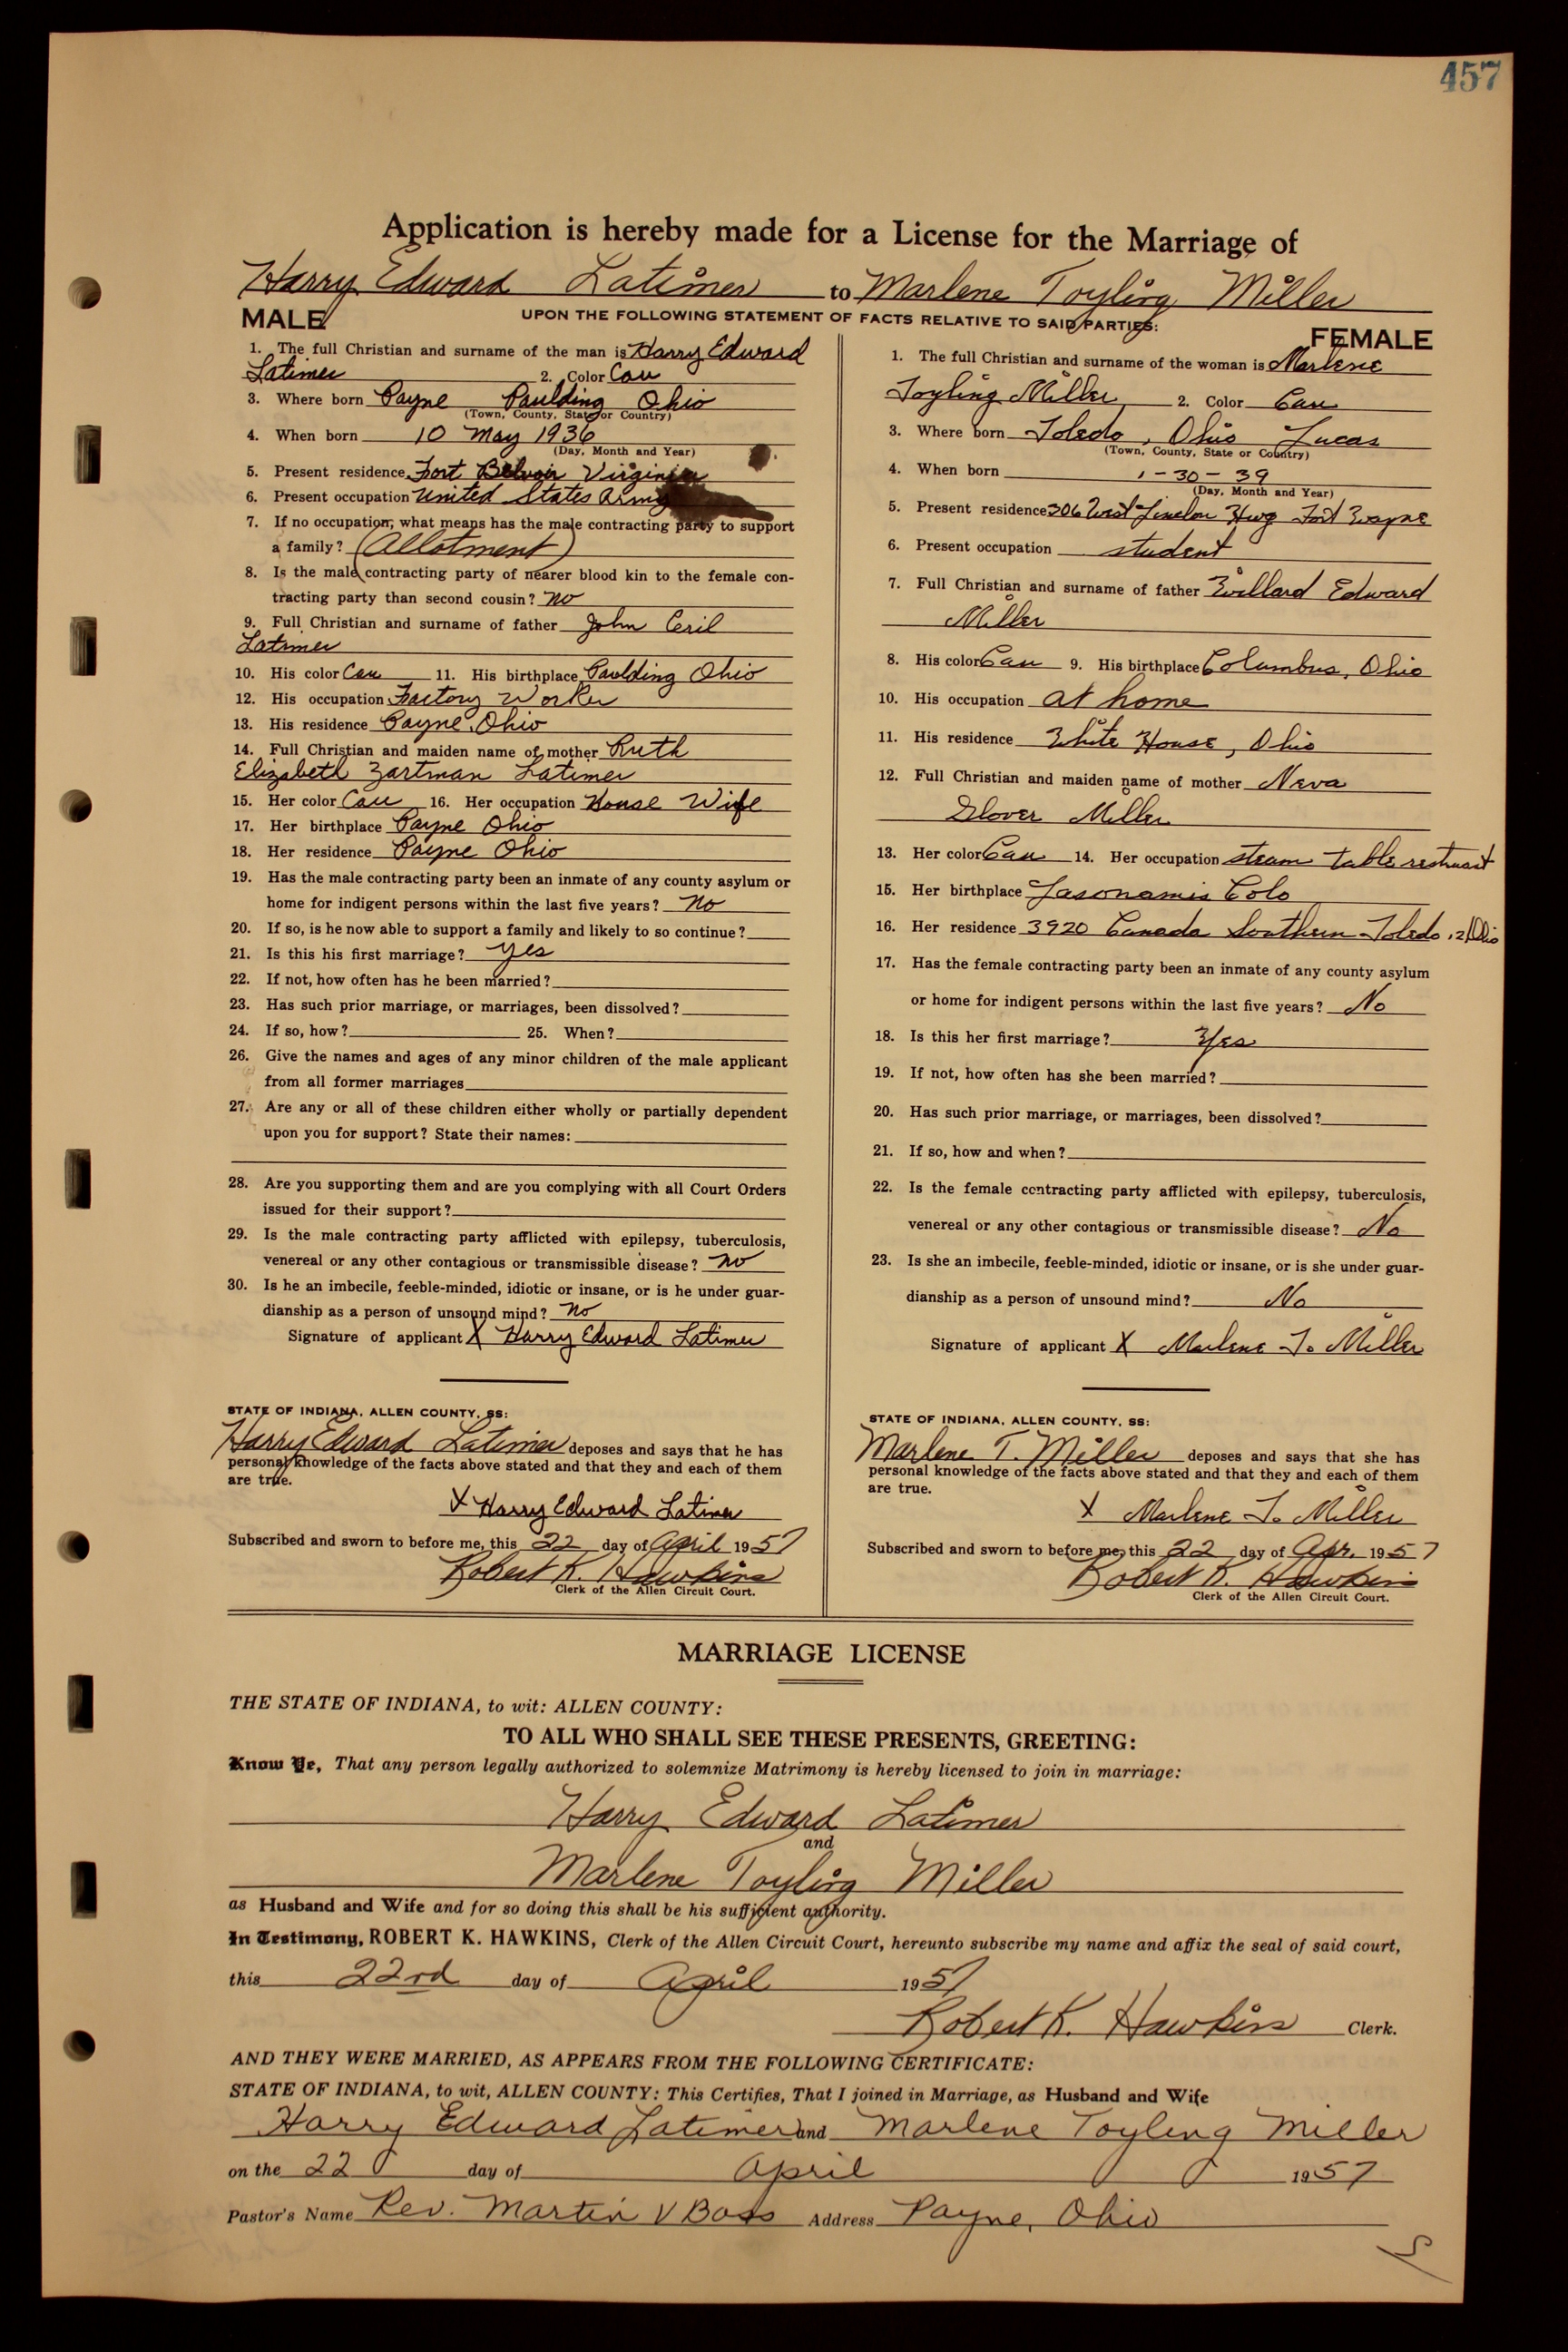 457
Application is hereby made for a License for the Marriage of
Harry Edward Latimer to Marlene Toyling Miller
UPON THE FOLLOWING STATEMENT OF FACTS RELATIVE TO SAID PARTIES:
MALE
1. The full Christian and surname of the man is Harry Edward
Latimer 2. Color Cau
3. Where born Payne Paulding Ohio
(Town, County, State or Country)
4. When born 10 May 1936
(Day, Month and Year)
5. Present residence Fort Belvoir Virginia
6. Present occupation United States Army
7. If no occupation, what means has the male contracting party to support
a family? (Allotment)
8. Is the male contracting party of nearer blood kin to the female con-
tracting party than second cousin? no
9. Full Christian and surname of father John Ceril
Latimer
10. His color Cau 11. His birthplace Paulding Ohio
12. His occupation Factory Worker
13. His residence Payne, Ohio
14. Full Christian and maiden name of mother Ruth
Elizabeth Zartman Latimer
15. Her color Cau 16. Her occupation House Wife
17. Her birthplace Payne Ohio
18. Her residence Payne Ohio
19. Has the male contracting party been an inmate of any county asylum or
home for indigent persons within the last five years? no
20. If so, is he now able to support a family and likely to so continue?
21. Is this his first marriage? yes
22. If not, how often has he been married?
23. Has such prior marriage, or marriages, been dissolved?
24. If so, how? 25. When?
26. Give the names and ages of any minor children of the male applicant
from all former marriages
27. Are any or all of these children either wholly or partially dependent
upon you for support? State their names:
28. Are you supporting them and are you complying with all Court Orders
issued for their support?
29. Is the male contracting party afflicted with epilepsy, tuberculosis,
venereal or any other contagious or transmissible disease? no
30. Is he an imbecile, feeble-minded, idiotic or insane, or is he under guar-
dianship as a person of unsound mind? no
Signature of applicant X Harry Edward Latimer
STATE OF INDIANA, ALLEN COUNTY, SS:
Harry Edward Latimer deposes and says that he has
personal knowledge of the facts above stated and that they and each of them
are true.
X Harry Edward Latimer
Subscribed and sworn to before me, this 22 day of April 1957
Robert K. Hawkins
Clerk of the Allen Circuit Court.
FEMALE
1. The full Christian and surname of the woman is Marlene
Toyling Miller 2. Color Cau
3. Where born Toledo, Ohio Lucas
(Town, County, State or Country)
4. When born 1-30-39
(Day, Month and Year)
5. Present residence 306 West Hwg Fort Wayne
6. Present occupation student
7. Full Christian and surname of father Willard Edward
Miller
8. His color Cau 9. His birthplace Columbus, Ohio
10. His occupation at home
11. His residence White House, Ohio
12. Full Christian and maiden name of mother Neva
Glover Miller
13. Her color Cau 14. Her occupation steam table
15. Her birthplace Colo
16. Her residence 3920 Canada Southern Toledo, Ohio
17. Has the female contracting party been an inmate of any county asylum
or home for indigent persons within the last five years? No
18. Is this her first marriage? Yes
19. If not, how often has she been married?
20. Has such prior marriage, or marriages, been dissolved?
21. If so, how and when?
22. Is the female contracting party afflicted with epilepsy, tuberculosis,
venereal or any other contagious or transmissible disease? No
23. Is she an imbecile, feeble-minded, idiotic or insane, or is she under guar-
dianship as a person of unsound mind? No
Signature of applicant X Marlene T. Miller
STATE OF INDIANA, ALLEN COUNTY, SS:
Marlene T. Miller deposes and says that she has
personal knowledge of the facts above stated and that they and each of them
are true.
X Marlene T. Miller
Subscribed and sworn to before me, this 22 day of Apr. 1957
Robert K. Hawkins
Clerk of the Allen Circuit Court.
MARRIAGE LICENSE
THE STATE OF INDIANA, to wit: ALLEN COUNTY:
TO ALL WHO SHALL SEE THESE PRESENTS, GREETING:
Know Ye, That any person legally authorized to solemnize Matrimony is hereby licensed to join in marriage:
Harry Edward Latimer
and
Marlene Toyling Miller
as Husband and Wife and for so doing this shall be his sufficient authority.
In Testimony, ROBERT K. HAWKINS, Clerk of the Allen Circuit Court, hereunto subscribe my name and affix the seal of said court,
this 22rd day of April 1957
Robert K. Hawkins Clerk.
AND THEY WERE MARRIED, AS APPEARS FROM THE FOLLOWING CERTIFICATE:
STATE OF INDIANA, to wit, ALLEN COUNTY: This Certifies, That I joined in Marriage, as Husband and Wife
Harry Edward Latimer and Marlene Toyling Miller
on the 22 day of April 1957
Pastor's Name Rev. Martin V Boss Address Payne, Ohio